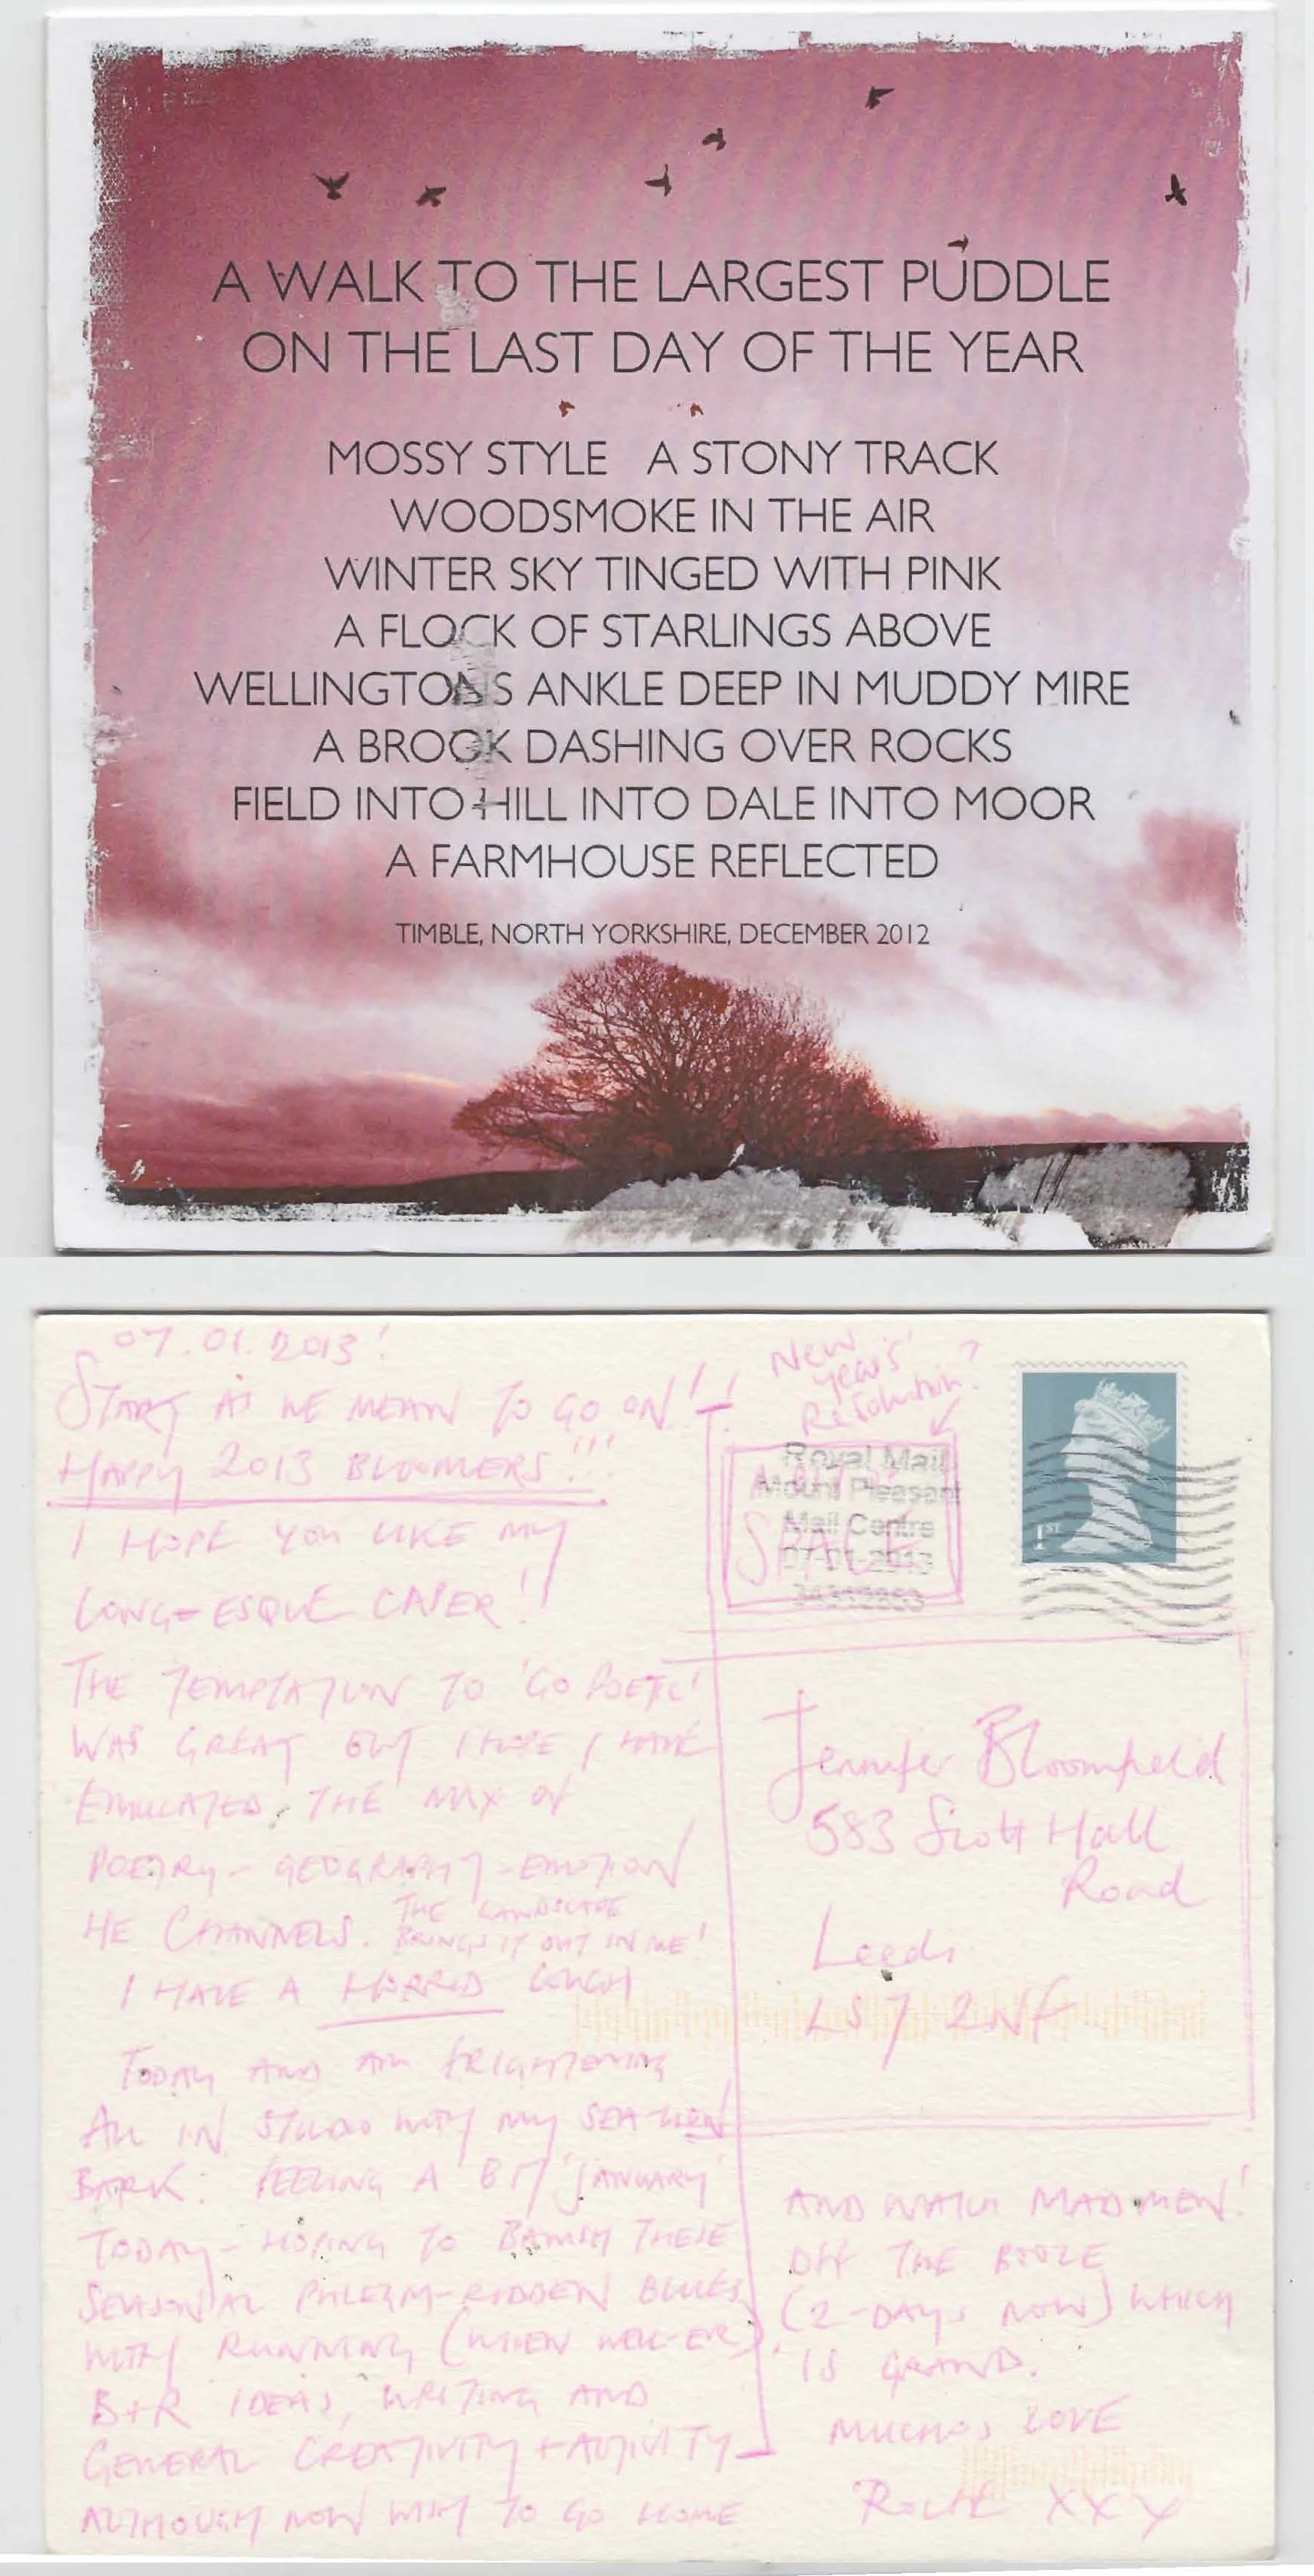 A WALK TO THE LARGEST PUDDLE
ON THE LAST DAY OF THE YEAR
MOSSY STYLE A STONY TRACK
WOODSMOKE IN THE AIR
WINTER SKY TINGED WITH PINK
A FLOCK OF STARLINGS ABOVE
WELLINGTONS ANKLE DEEP IN MUDDY MIRE
A BROOK DASHING OVER ROCKS
FIELD INTO HILL INTO DALE INTO MOOR
A FARMHOUSE REFLECTED
TIMBLE, NORTH YORKSHIRE, DECEMBER 2012
07.01.2013!
START AS WE MEAN TO GO ON!!
HAPPY 2013 BLOOMERS!!!
I HOPE YOU LIKE MY
LONG-ESQUE CAPER!
THE TEMPTATION TO 'GO POETIC'
WAS GREAT BUT I HOPE I HAVE
EMULATED THE MIX OF
POETRY - GEOGRAPHY - EMOTION
HE CHANNELS. THE LANDSCAPE
BRINGS IT OUT IN ME!
I HAVE A HORRID COUGH
TODAY AND AM FRIGHTENING
ALL IN STUDIO WITH MY SEA-LION
BARK. FEELING A BIT 'JANUARY'
TODAY - HOPING TO BANISH THESE
SEASONAL PHLEGM-RIDDEN BLUES
WITH RUNNING (WHEN WELL-ER),
B+R IDEAS, WRITING AND
GENERAL CREATIVITY + ACTIVITY
ALTHOUGH NOW WISH TO GO HOME
AND WATCH MAD MEN!
OFF THE BOOZE
(2-DAYS NOW) WHICH
IS GRAND.
MUCHOS LOVE
XXX
New
Year's
Resolution?
SPACE
Royal Mail
Mount Pleasant
Mail Centre
07-01-2013
1ST
Jennifer Bloomfield
583 Scott Hall
Road
Leeds
LS7 2NF